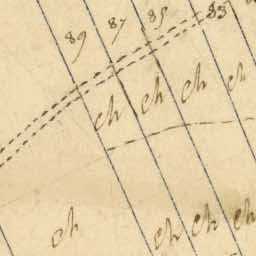 89 87 85 83
ch ch ch ch
ch ch ch ch